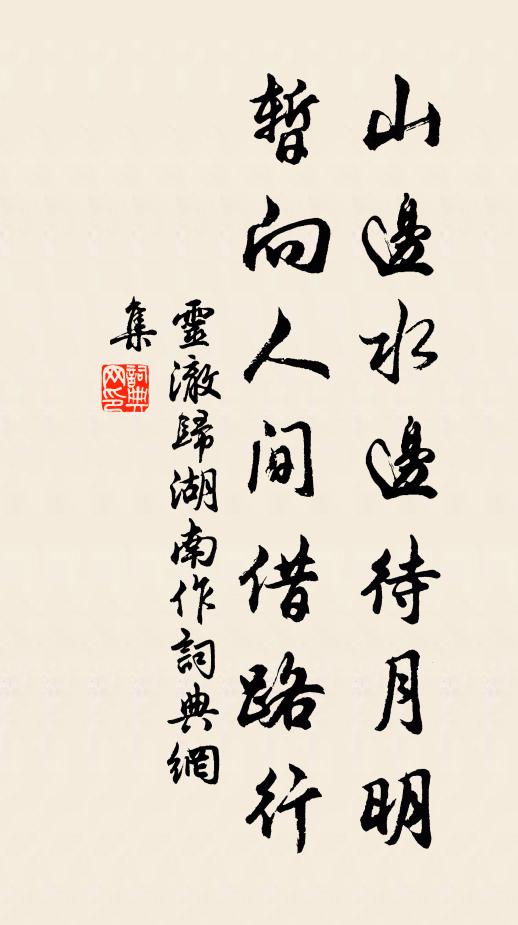 山邊水邊待月明
暫向人間借路行
靈澈歸湖南作詞典網
集
詞典
网印